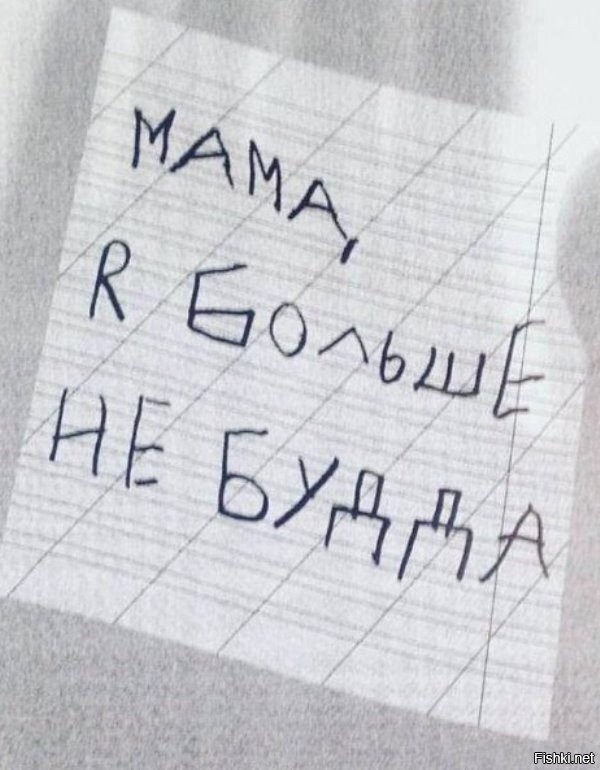 МАМА,
R БОЛЬШЕ
НЕ БУДДА
Fishki.net